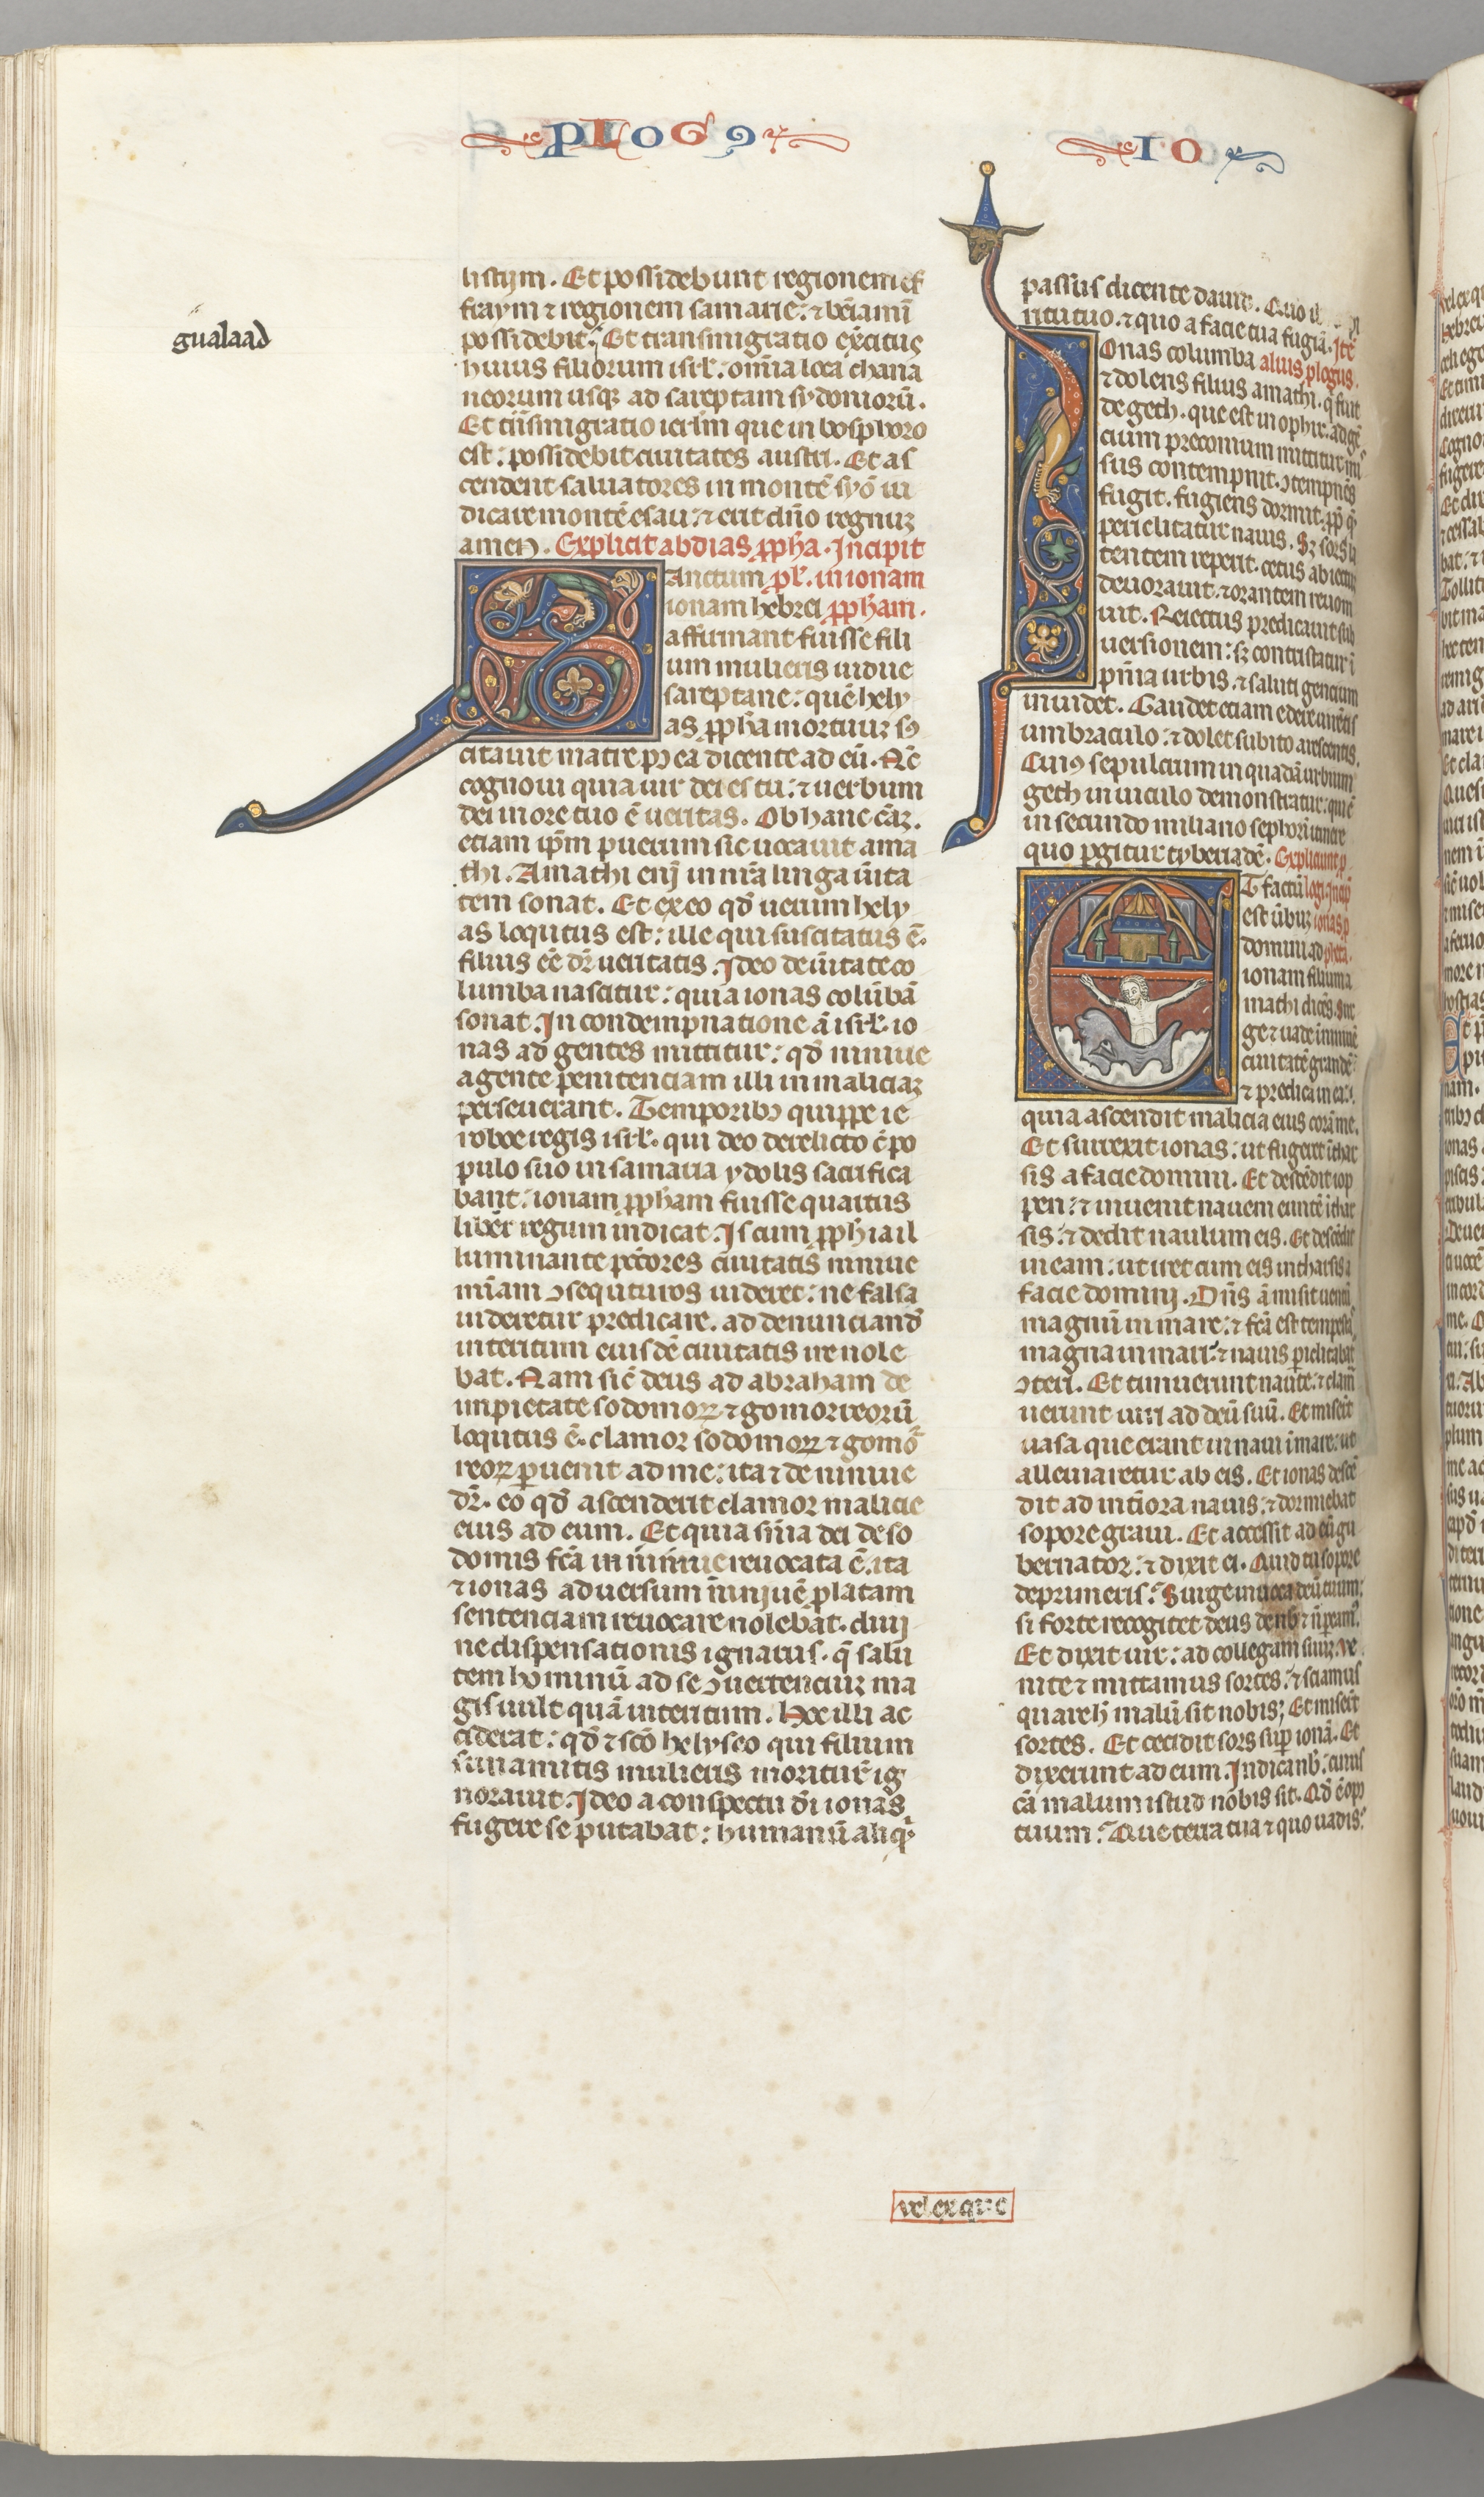 PLOG9
IO
listijm. Et possidebunt regionem ef
fraym ⁊ regionem samarie: ⁊ beiamī
gualaad
possidebit. Et transmigratio exercitus
huius filiorum isrl': omīa loca chana
neorum usq; ad sareptam sydoniorū.
Et tnsmigratio ierlm que in bosphoro
est: possidebit ciuitates austri. Et as
cendent saluatores in montē syō iu
dicare montē esau: ⁊ erit dn̄o regnuz
amen. Explicit abdias ppha. Incipit
Sanctum pl'. in ionam
ionam hebrei ppham.
affirmant fuisse fili
um mulieris uidue
sareptane: quē hely
as ppha mortuuz su
citauit matre p9 ea dicente ad eū. Nc̄
cognoui quia uir dei es tu: ⁊ uerbum
dei in ore tuo ē ueritas. Ob hanc cāz.
etiam ip̄m puerum sic uocauit ama
thi. Amathi enī in nr̄a linga ūita
tem sonat. Et ex eo qd̄ uerum hely
as loqutus est: ille qui suscitatus ē.
filius eē dr̄ ueritatis. Ideo de ūitate co
lumba nascitur: quia ionas colūbā
sonat. In condempnatione ā isrl'. io
nas ad gentes mittitur: qd̄ niniue
agente penitenciam illi in maliciaz
perseuerant. Temporib9 quippe ie
roboe regis isrl'. qui deo derelicto c̄ po
pulo suo in samaria ydolis sacrifica
bant: ionam ppham fuisse quartus
liber regum indicat. Is cum pphia il
luminante pctores ciuitatis niniue
mīam ɔsequturos uideret: ne falsa
uideretur predicare. ad denunciand̄
interitum eiusdē ciuitatis ire nole
bat. Nam sic deus ad abraham de
impietate sodomoꝝ ⁊ gomorreorū
loqutus ē. clamor sodomoꝝ ⁊ gomor
reoꝝ puenit ad me: ita ⁊ de niniue
dr̄. eo qd̄ ascenderit clamor malicie
eius ad eum. Et quia sn̄ia dei de so
domis fcā in niniue reuocata ē. ita
⁊ ionas aduersum niniuē platam
sentenciam reuocare nolebat. diui
ne dispensationis ignarus. q̄ salu
tem hominū ad se ɔuertenciuz ma
gis uult quā interitum. Hoc illi ac
ciderat: qd̄ ⁊ scō helyseo qui filium
sunamitis mulieris moritur̄ ig
norauit. Ideo a conspectu d̄i ionas
fugere se putabat: humanū aliq̇
passus dicente dauit. Quo
ritu tuo. ⁊ quo a facie tua fugiā. Itē
Ionas columba alius plogus.
⁊ dolens filius amathi. q̇ fuit
de geth. que est in ophir. ad gē
cium preconium mittitur mi
sus contempnit. ɔtempnēs
fugit. fugiens dormit. pp q̄
periclitatur nauis. Sꝫ sors la
tentem reperit. cetus abiectum
deuorauit. ⁊ orantem reuom
uit. Reiectus predicauit sub
uersionem: sꝫ contristatur ī
pn̄ia urbis. ⁊ saluti gencium
inuidet. Gaudet etiam edere uirētis
umbraculo: ⁊ dolet subito arescentis.
Cui9 sepulcrum in quadā urbium
geth in uiculo demonstratur: qui ē
in secundo miliario sephorī itinere
quo pgitur tyberiadē. Expliciunt p
Et factū logi. Incip
est ūbuz ionas p
domini ad pheta.
ionam filium a
mathi dicēs. Sur
ge ⁊ uade ī niniuē
ciuitatē grandē:
⁊ predica in ea:
quia ascendit malicia eius corā me.
Et surrexit ionas: ut fugeret ī thar
sis a facie domini. Et descēdit iop
pen: ⁊ inuenit nauem euntē ī thar
sis: ⁊ dedit naulum eis. Et descēdit
in eam: ut iret cum eis in tharsis a
facie domini. Dn̄s ā misit uentū
magnū in mare: ⁊ fcā est tempestas
magna in mari: ⁊ nauis periclitabat
ɔteri. Et timuerunt naute: ⁊ clam
uerunt uiri ad deū suū. Et miserūt
uasa que erant in naui ī mare: ut
alleuiaretur ab eis. Et ionas descē
dit ad intiora nauis: ⁊ dormiebat
sopore graui. Et accessit ad eū gu
bernator: ⁊ dixit ei. Quid tu sopore
deprimeris? Surge inuoca deū tuum:
si forte recogitet deus de nob ⁊ n̄ peam9.
Et dixit uir: ad collegam suuz. ve
nite ⁊ mittamus sortes: ⁊ sciamus
quare h̄ malū sit nobis; Et miserūt
sortes. Et cecidit sors sup ionā. Et
dixerunt ad eum. Indica nob: cuius
cā malum istud nobis sit. Qd̄ ē op9
tuum? Que terra tua ⁊ quo uadis?
vel ex que